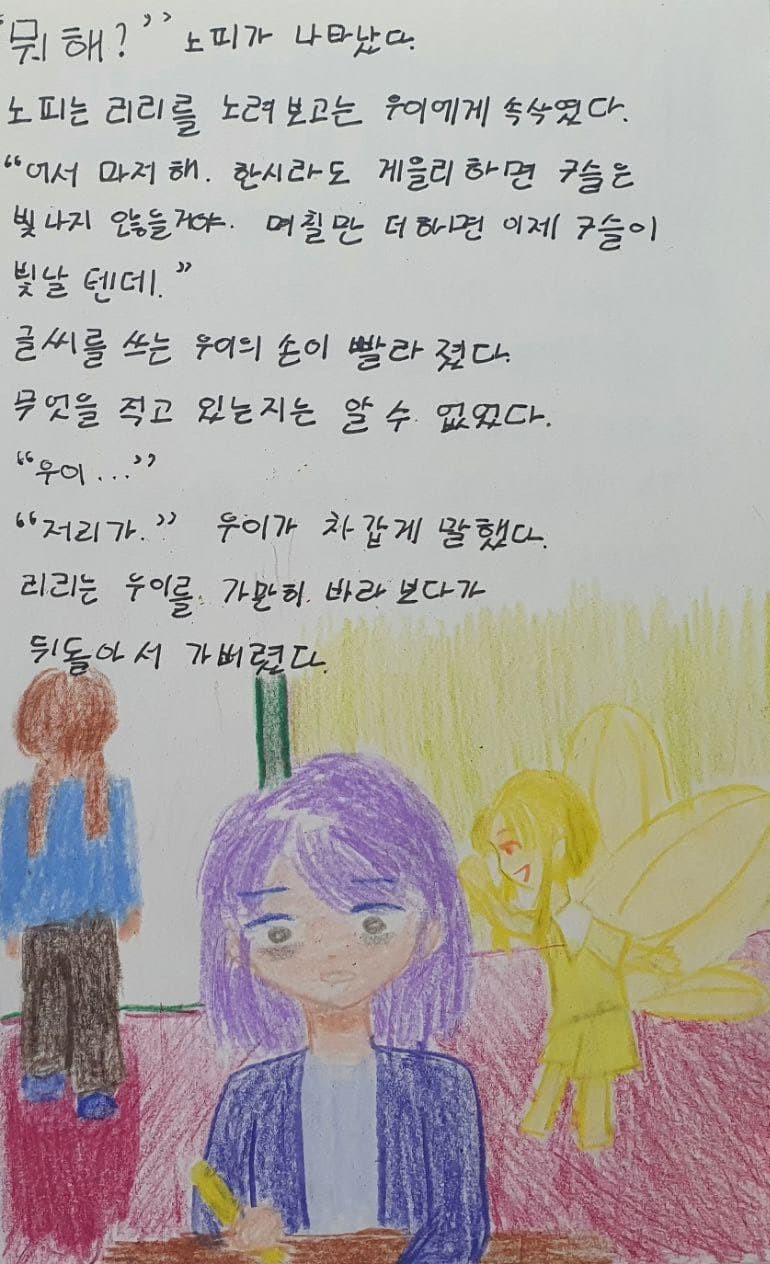 "뭐해?" 노피가 나타났다.
노피는 리리를 노려보고는 우이에게 속삭였다.
"어서 마저 해. 한시라도 게을리하면 구슬은
빛나지 않을거야. 며칠만 더하면 이제 구슬이
빛날텐데."
글씨를 쓰는 우이의 손이 빨라졌다.
무엇을 적고 있는지는 알 수 없었다.
"우이..."
"저리가." 우이가 차갑게 말했다.
리리는 우이를 가만히 바라보다가
뒤돌아서 가버렸다.